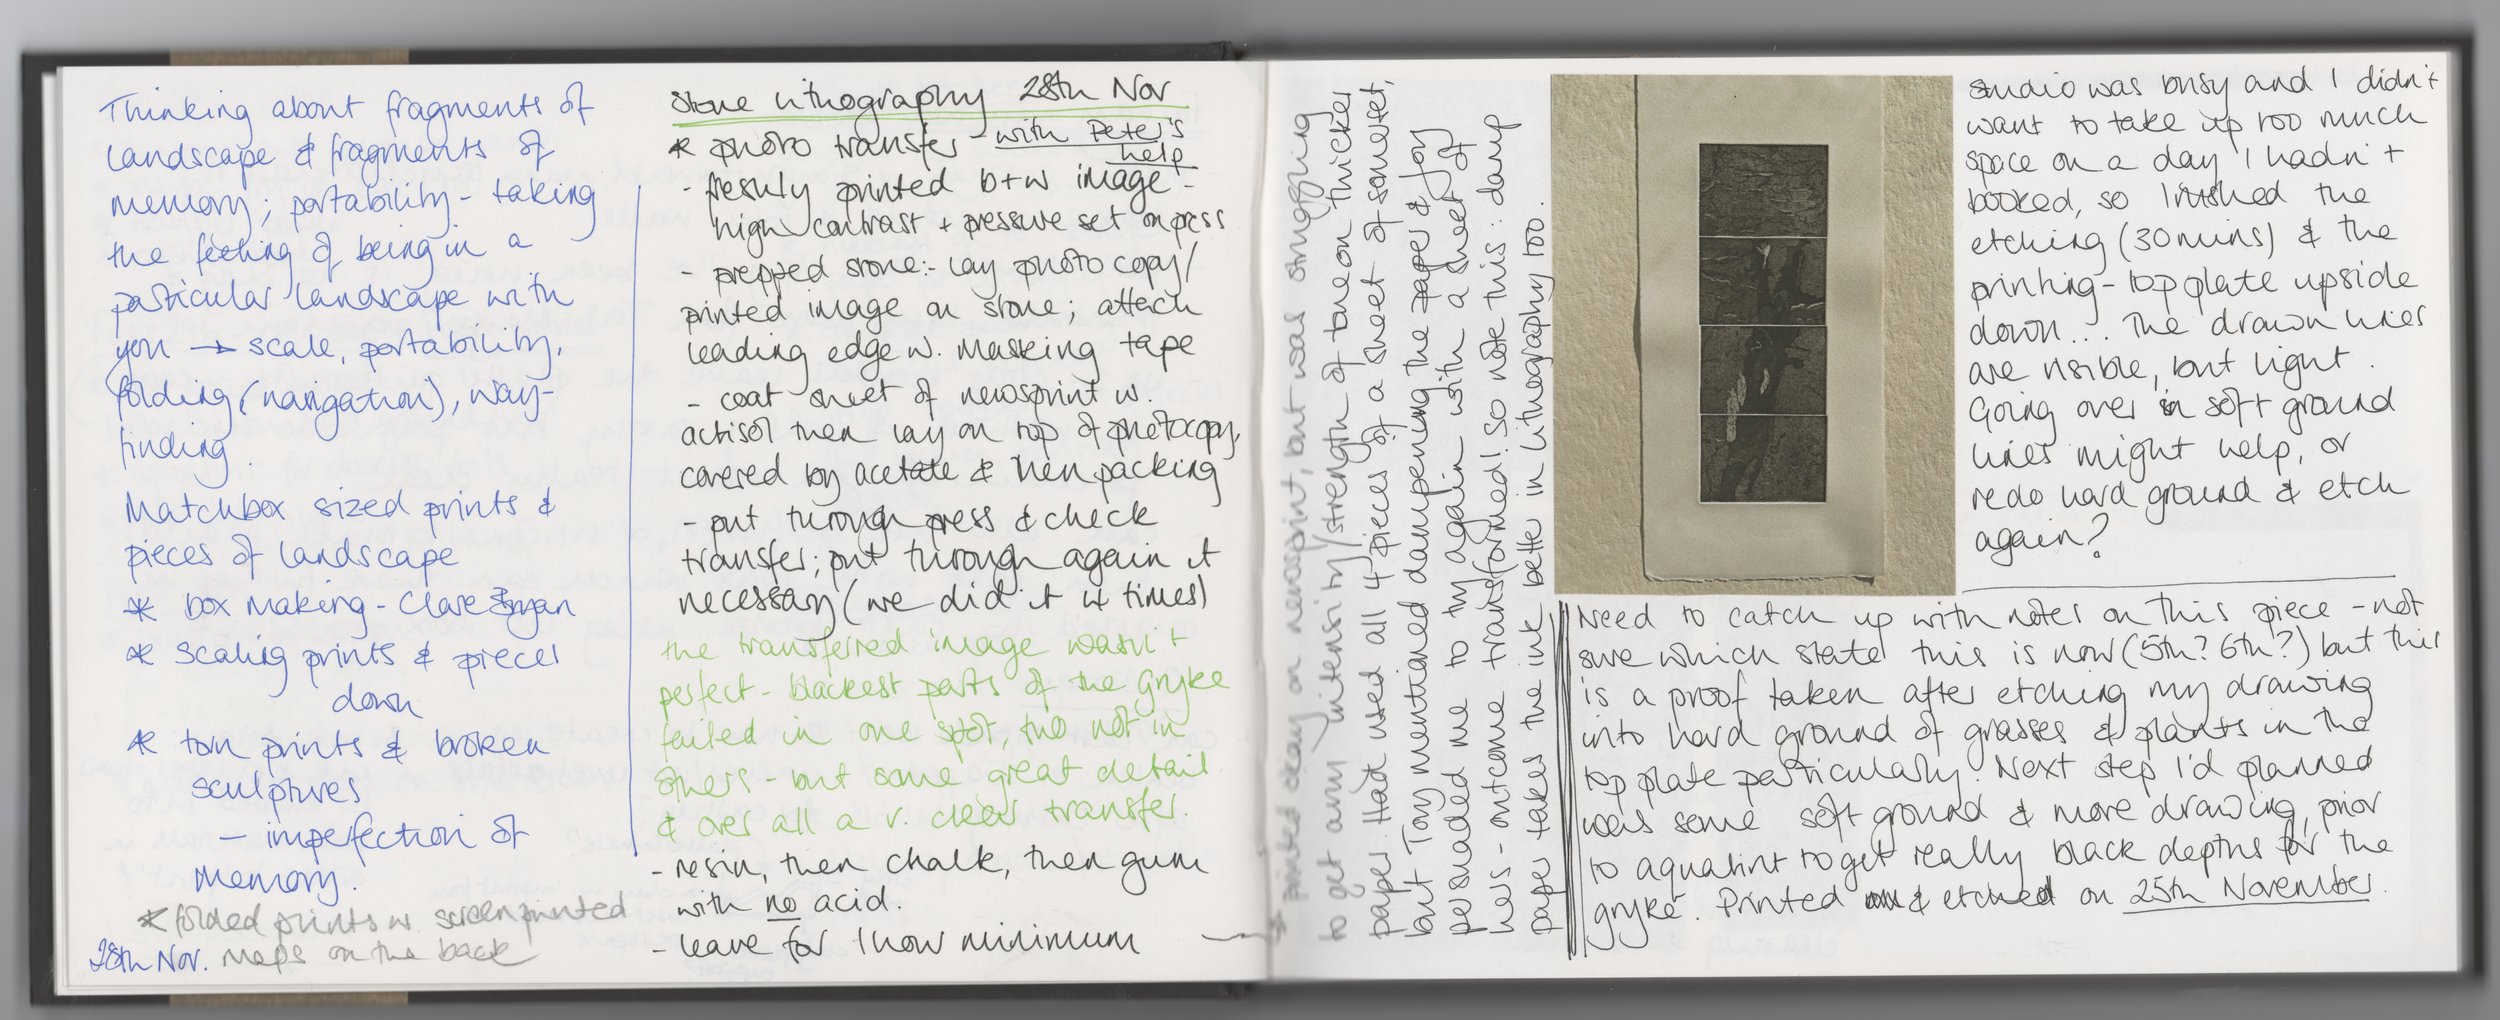 Thinking about fragments of
landscape & fragments of
memory; portability - taking
the feeling of being in a
particular landscape with
you → scale, portability,
folding (navigation), way-
finding.
Matchbox sized prints &
pieces of landscape
* box making - Clare
* scaling prints & pieces
down
* torn prints & broken
sculptures
- imperfection of
memory.
* folded prints w screenprinted
maps on the back
28th Nov.
Stone lithography 28th Nov
* photo transfer - with Peter's
help
- freshly printed b+w image -
high contrast + pressure set on press
- prepped stone:- lay photocopy/
printed image on stone; attach
leading edge w. masking tape
- coat sheet of newsprint w.
actisol then lay on top of photocopy,
covered by acetate & then packing
- put through press & check
transfer; put through again if
necessary (we did it 4 times)
the transferred image wasn't
perfect - blackest parts of the gryke
failed in one spot, tho not in
others - but some great detail
& over all a v. clear transfer.
- resin, then chalk, then gum
with no acid.
- leave for 1 hour minimum
printed okay on newsprint, but was struggling
to get any intensity/strength of tone on thicker
paper. Had used all 4 pieces of a sheet of somerset,
but Tony mentioned dampening the paper & Joy
persuaded me to try again with a sheet of
hers - outcome transformed! So note this: damp
paper takes the ink better in lithography too.
Need to catch up with notes on this piece - not
sure which state this is now (5th? 6th?) but this
is a proof taken after etching my drawing
into hard ground of grasses & plants in the
top plate particularly. Next step I'd planned
was some soft ground & more drawing, prior
to aquatint to get really black depths for the
gryke. Printed & etched on 25th November.
studio was busy and I didn't
want to take up too much
space on a day I hadn't
booked, so I rushed the
etching (30 mins) & the
printing - top plate upside
down... The drawn lines
are visible, but light.
Going over in soft ground
lines might help, or
redo hard ground & etch
again?